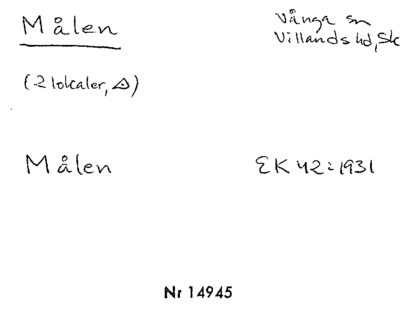 Målen
Vånga sn
Villands hd, Sk
(2 lokaler, △)
Målen
EK 42:1931
Nr 14945